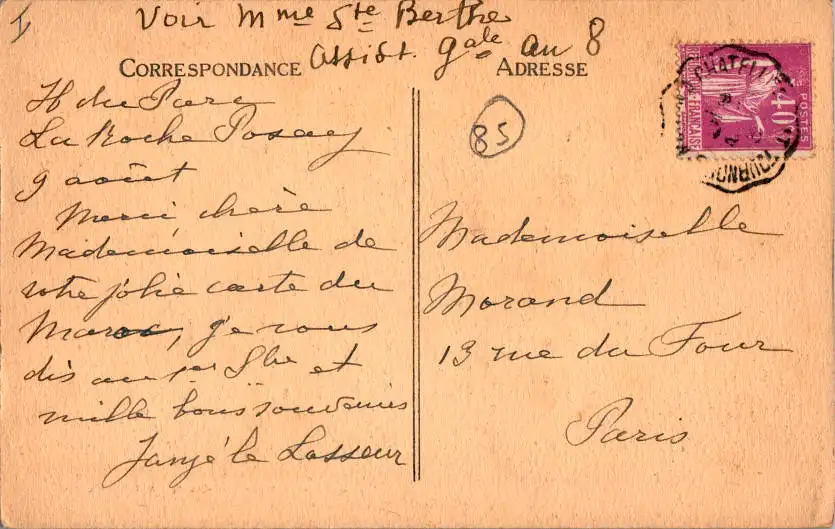 I
Voir Mme Ste Berthe
assist. gale au 8
CORRESPONDANCE
ADRESSE
H du Parc
La Roche Posay
9 août
Merci chère
Mademoiselle de
votre jolie carte du
Maroc, je vous
dis au 1er 8bre et
mille bons souvenirs
le Lasseur
85
Mademoiselle
Morand
13 rue du Four
Paris
POSTES
40
CHATELL
TOURNO